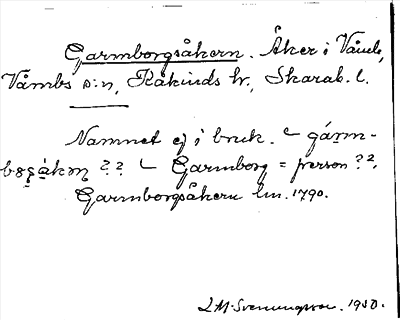 Garmborgsåkern. Åker i Våmb,
Våmbs s:n, Kåkinds hr., Skarab. l.
Namnet ej i bruk. ⌣ gárm-
Garmborg = person ??
Garmborgsåkern lm. 1790.
L. M. Svenungsson. 1930.